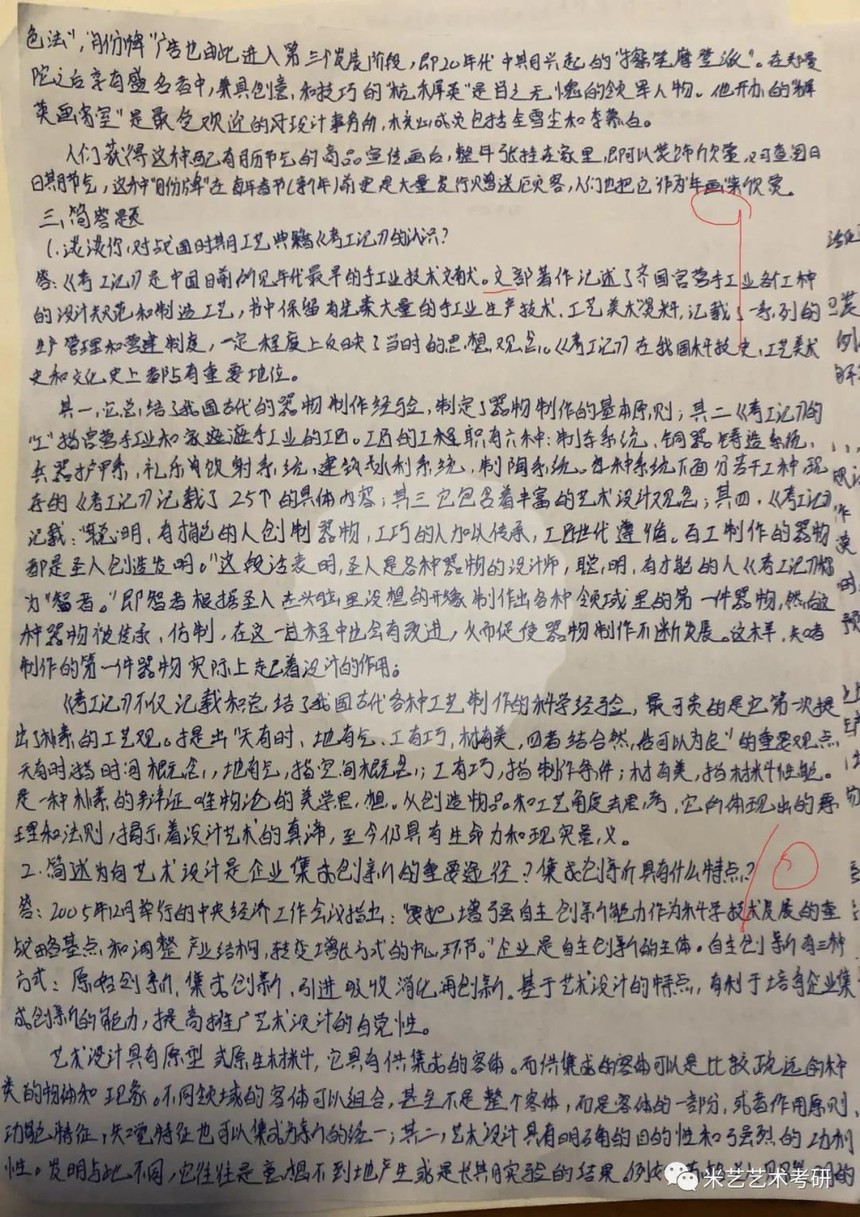 色法","月份牌"广告也由此进入第三个发展阶段,即20年代中期兴起的"擦笔摩登派"。在郑曼
陀之后享有盛名者中,兼具创意,和技巧的"杭穉英"是当之无愧的领军人物。他开办的"穉
英画室"是最受欢迎的对设计事务所,杰出成员包括金雪尘和李慕白。
人们获得这种配有月历节气的商品宣传画后,整年张挂在家里,即可以装饰欣赏,又可查阅日
日期节气,这种"月份牌"在每年春节(新年)前更是大量发行赠送厄灾客,人们也把它作为"年画"来欣赏。
三、简答题
1.谈谈你对战国时期工艺典籍《考工记》的认识?
答:《考工记》是中国目前所见年代最早的手工业技术文献。文部著作记述了齐国官营手工业各工种
的设计规范和制造工艺,书中保留有先秦大量的手工业生产技术、工艺美术资料,记载了一系列的
生产管理和营建制度,一定程度上反映了当时的思想观念。《考工记》在我国科技史、工艺美术
史和文化史上都占有重要地位。
其一,它总结了我国古代的器物制作经验,制定了器物制作的基本原则;其二《考工记》的
"工"指官营手工业和家庭手工业的工匠。工匠的工程职有六种:制车系统、铜器铸造系统、
兵器护甲系,礼乐 饮射系统,建筑水利系统,制陶系统。每种系统下面分若干工种现
存的《考工记》记载了25个的具体内容;其三它包含着丰富的艺术设计观念;其四,《考工记》
记载:"聪明,有才能的人创制器物,工巧的人加以传承,工匠世代遵循。百工制作的器物
都是圣人创造发明。"这段话表明,圣人是各种器物的设计师,聪,明,有才能的人《考工记》称
为"智者。"即智者根据圣人在头脑里设想的形象制作出各种领域里的第一件器物,然后这
种器物被传承、仿制,在这一过程中也会有改进,从而促使器物制作不断发展。这样,知者
制作的第一件器物实际上起着设计的作用。
《考工记》不仅记载和总结了我国古代各种工艺制作的科学经验,最可贵的是它第一次提
出了朴素的工艺观。提出"天有时、地有气、工有巧,材有美,四者结合然后可以为良"的重要观点,
天有时指时间概念,地有气,指空间概念;工有巧,指制作条件;材有美,指材料性能。
是一种朴素的辩证唯物论的美学思想。从创造物品和工艺角度去思考,它所体现出的原
理和法则,揭示着设计艺术的真谛,至今仍具有生命力和现实意义。
2.简述为何艺术设计是企业集成创新的重要途径?集成创新具有什么特点?
答:2005年12月举行的中央经济工作会议指出:"要把增强自主创新能力作为科学技术发展的
战略基点和调整产业结构,转变增长方式的中心环节。"企业是自主创新的主体。自主创新有三种
方式:原始创新,集成创新,引进吸收消化再创新。基于艺术设计的特点,有利于培育企业集
成创新的能力,提高推广艺术设计的自觉性。
艺术设计具有原型式原生材料,它具有供集成的客体。而供集成的客体可以是比较疏远的种
类的物体和现象。不同领域的客体可以组合,甚至不是整个客体,而是客体的一部分,或者作用原则、
功能特征,知觉特征也可以集成为新的统一;其二,艺术设计具有明确的目的性和强烈的功利
性。发明与此不同,它往往是意想不到地产生或是长期实验的结果。例如
米艺艺术考研